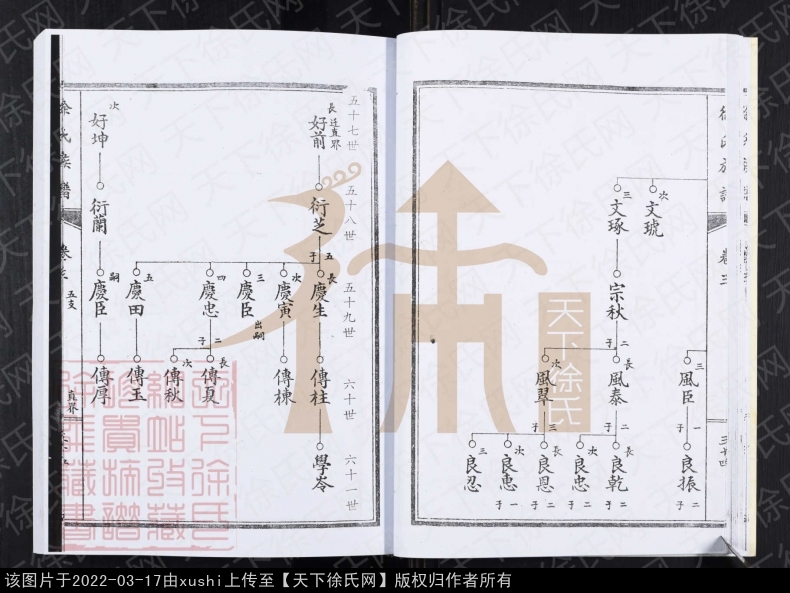 徐氏族譜
卷三
次
文琥
三
文琢
宗秋
二子
三
風臣
長
風泰
次
風翠
一子
二子
三子
良振
二子
長
良乾
二子
次
良忠
二子
長
良恩
二子
次
良惠
一子
三
良忍
五十七世
長
迁直界
好前
次
好坤
五十八世
衍芝
五子
衍蘭
五十九世
長
慶生
次
慶寅
三
慶臣
出嗣
四
慶忠
二子
五
慶田
嗣
慶臣
六十世
傳柱
傳棟
長
傳夏
次
傳秋
傳玉
傳厚
六十一世
學岺
氏族譜
五支
直界
天下徐氏
天下徐氏网
该图片于2022-03-17由xushi上传至【天下徐氏网】版权归作者所有